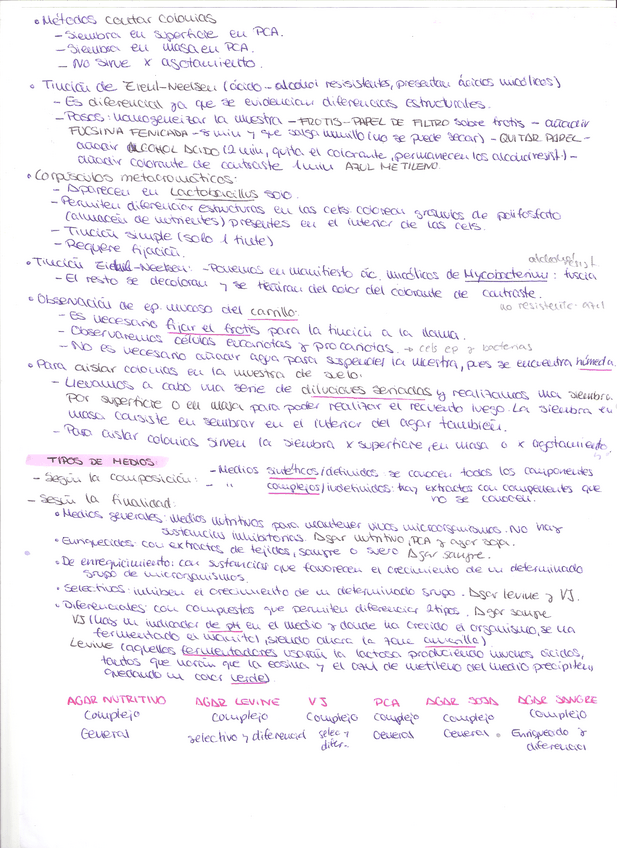 • Métodos contar colonias
- Siembra en superficie en PCA.
- Siembra en masa en PCA.
- No sirve x agotamiento.
• Tinción de Ziehl-Neelsen (ácido-alcohol resistentes, presentan ácidos micólicos)
- Es diferencial ya que se evidencian diferencias estructurales.
- Pasos: homogeneizar la muestra - FROTIS - PAPEL DE FILTRO sobre frotis - añadir
FUCSINA FENICADA - 8 min y que salga humillo (no se puede secar) - QUITAR PAPEL -
añadir ALCOHOL ÁCIDO (2 min, quita el colorante, permanecen los alcoholresist) -
añadir colorante de contraste 1 min AZUL METILENO.
• Corpúsculos metacromáticos:
- Aparecen en Lactobacillus solo.
- Permiten diferenciar estructuras en las cels. colorean gránulos de polifosfato
(almacén de nutrientes) presentes en el interior de las cels.
- Tinción simple (solo 1 tinte)
- Requiere fijación.
• Tinción Ziehl-Neelsen: - Ponemos en manifiesto ác. micólicos de Mycobacterium: fucsia
alcohol resist.
- El resto se decoloran y se tiñen del color del colorante de contraste.
no resistente - azul
• Observación de ep. mucoso del carrillo:
- Es necesario fijar el frotis para la tinción a la llama.
- Observaremos células eucariotas y procariotas. → cels ep y bacterias
- No es necesario añadir agua para suspender la muestra, pues se encuentra húmeda.
• Para aislar colonias en la muestra de suelo:
- Llevamos a cabo una serie de diluciones seriadas y realizamos una siembra
por superficie o en masa para poder realizar el recuento luego. La siembra en
masa consiste en sembrar en el interior del agar también.
- Para aislar colonias sirven la siembra x superficie, en masa o x agotamiento
TIPOS DE MEDIOS:
- Según la composición: - Medios sintéticos/definidos: se conocen todos los componentes
- " complejos/indefinidos: hay extractos con componentes que
no se conocen.
- Según la finalidad:
• Medios generales: medios nutritivos para mantener vivos microorganismos. No hay
sustancias inhibitorias. Agar nutritivo, PCA y agar soja.
• Enriquecidos: con extractos de tejidos, sangre o suero. Agar sangre.
• De enriquecimiento: con sustancias que favorecen el crecimiento de un determinado
grupo de microorganismos.
• Selectivos: inhiben el crecimiento de un determinado grupo. Agar levine y VJ.
• Diferenciales: con compuestos que permiten diferenciar 2 tipos. Agar sangre
VJ (hay un indicador de pH en el medio y donde ha crecido el organismo, se ha
fermentado el manitol, siendo ahora la zona amarilla)
Levine (aquellos fermentadores usarán la lactosa produciendo muchos ácidos,
tantos que harán que la eosina y el azul de metileno del medio precipiten,
quedando un color verde).
AGAR NUTRITIVO AGAR LEVINE VJ PCA AGAR SOJA AGAR SANGRE
Complejo complejo Complejo Complejo Complejo Complejo
General selectivo y diferencial selec y difer. General General. Enriquecido y
diferencial